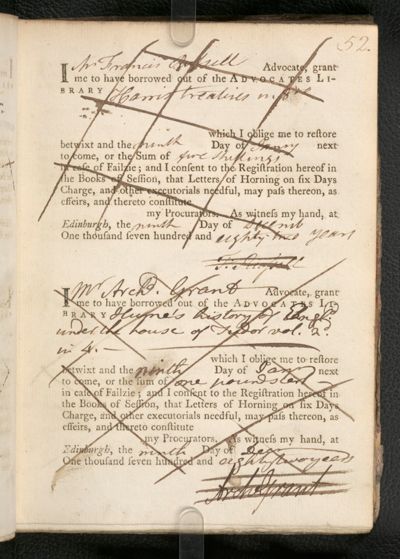 52.
I Mr Francis Russell Advocate, grant
me to have borrowed out of the ADVOCATES LI-
BRARY Harris treatises in 8o
which I oblige me to restore
betwixt and the ninth Day of Janry next
to come, or the Sum of five shillings
in case of Failzie; and I consent to the Registration hereof in
the Books of Session, that Letters of Horning on six Days
Charge, and other executorials needful, may pass thereon, as
effeirs, and thereto constitute
my Procurators. As witness my hand, at
Edinburgh, the ninth Day of Decemb
One thousand seven hundred and eighty two years
F. Russell
I Mr Archd. Grant Advocate, grant
me to have borrowed out of the ADVOCATES LI-
BRARY Hume's history of Engld
under the house of Tudor vol. 2d.
in 4.
which I oblige me to restore
betwixt and the ninth Day of Jany next
to come, or the sum of one pound sterl
in case of Failzie; and I consent to the Registration hereof in
the Books of Session, that Letters of Horning on six Days
Charge, and other executorials needful, may pass thereon, as
effeirs, and thereto constitute
my Procurators. As witness my hand, at
Edinburgh, the ninth Day of Dec
One thousand seven hundred and eighty two years
Archd Grant